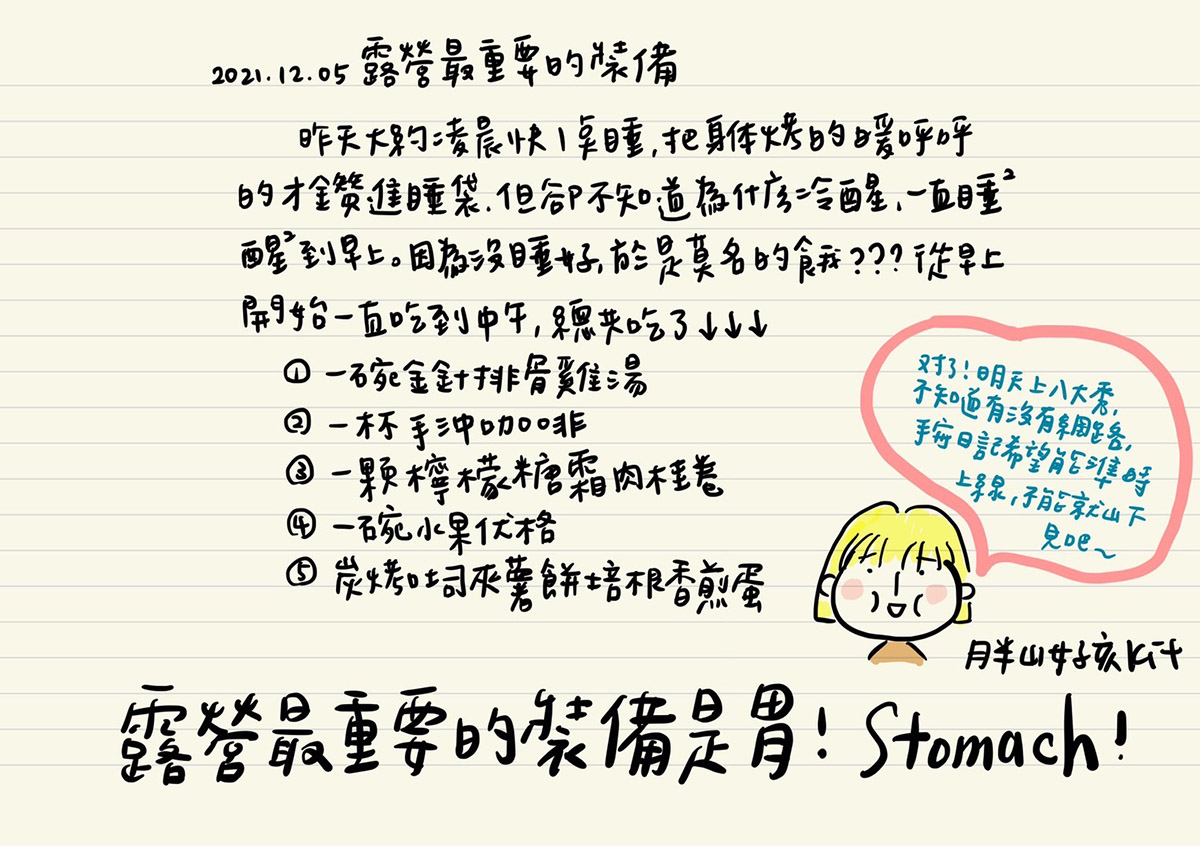 2021.12.05 露營最重要的裝備
昨天大約凌晨快1点睡,把身体烤的暖呼呼
的才鑽進睡袋.但卻不知道為什広冷醒,一直睡²
醒²到早上。因為沒睡好,於是莫名的餓???從早上
開始一直吃到中午,總共吃了↓↓↓
① 一碗金針排骨雞湯
② 一杯手沖咖啡
③ 一顆檸檬糖霜肉桂卷
④ 一碗水果优格
⑤ 炭烤吐司夾薯餅培根香煎蛋
对了!明天上八大秀,
不知道有沒有網路,
手寫日記希望能準時
上線,不能就山下
見吧~
胖山女孩Kit
露營最重要的裝備是胃! Stomach!